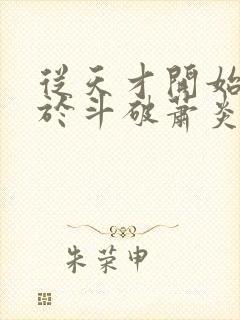 從天才開始
於斗破蕭炎
朱荣申